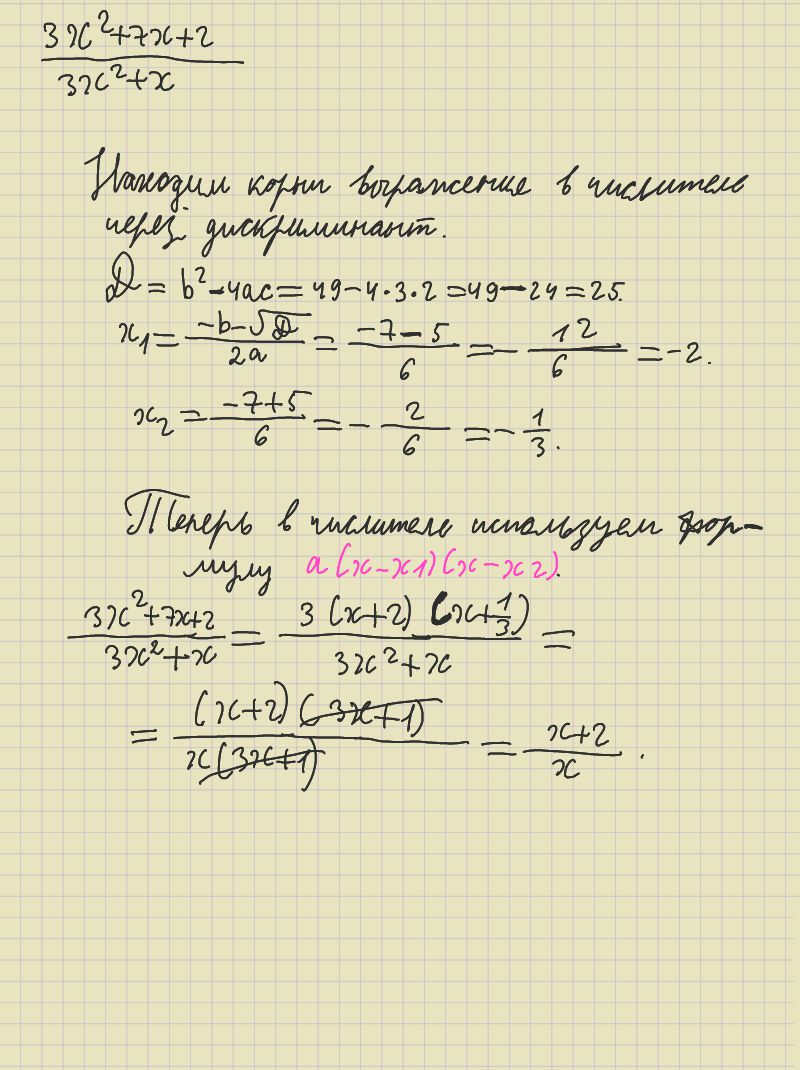 (3x²+7x+2)/(3x²+x)
Находим корни выражение в числителе
через дискриминант.
D = b²-4ac = 49-4·3·2 = 49-24 = 25.
x₁ = (-b-√D)/(2a) = (-7-5)/6 = -12/6 = -2.
x₂ = (-7+5)/6 = -2/6 = -1/3.
Теперь в числителе используем фор-
мулу a(x-x1)(x-x2).
(3x²+7x+2)/(3x²+x) = (3(x+2)(x+1/3))/(3x²+x) =
= ((x+2)(3x+1))/(x(3x+1)) = (x+2)/x.